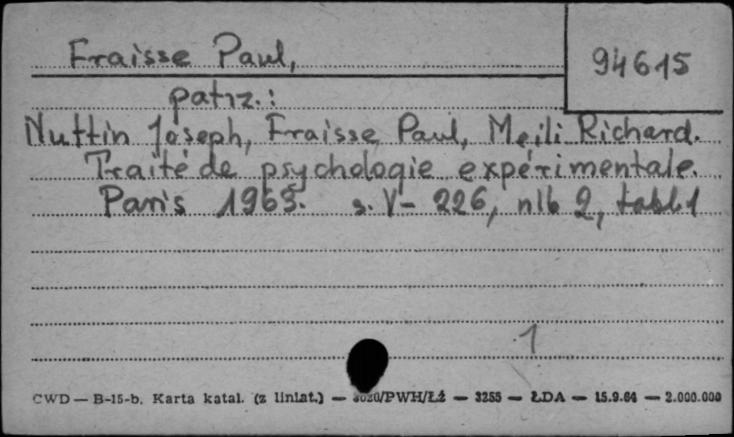 Fraisse Paul,
94615
patrz.:
Nuttin Joseph, Fraisse Paul, Meili Richard.
Traité de psychologie expérimentale.
Paris 1963. s. V- 226, nlb 2, tabl. 1
1
CWD — B-15-b. Karta katal. (z liniat.) — 3020/PWH/Łź — 3255 — ŁDA — 15.9.64 — 2.000.000